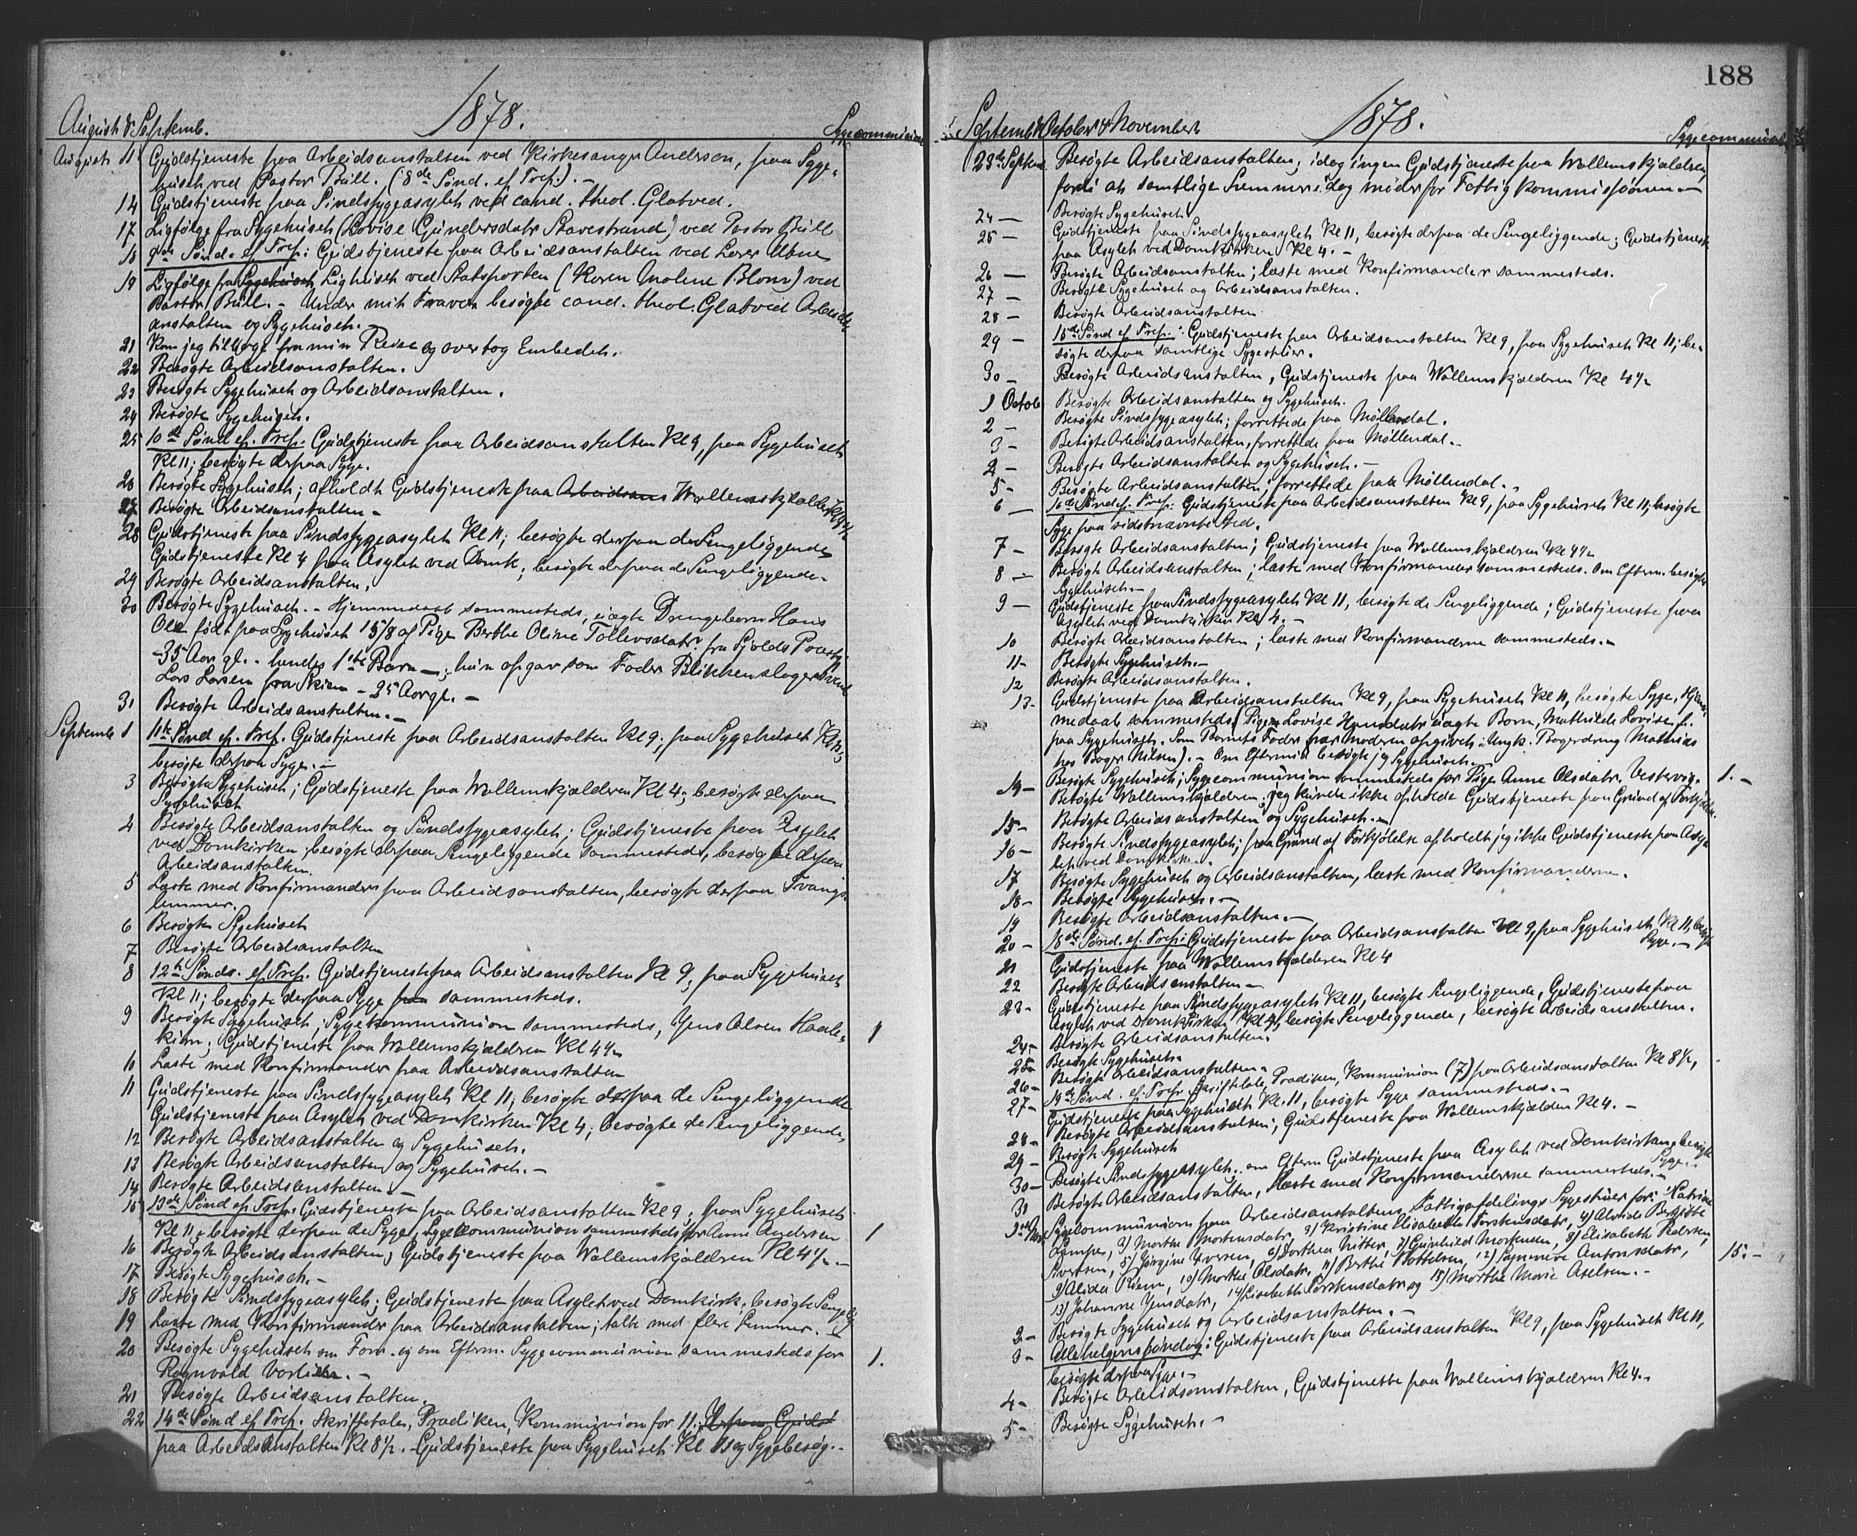 August & Septemb. 1878. Sygecommunion
August 11 Gudstjeneste paa Arbeidsanstalten ved Kirkesanger Andersen, paa Syge-
huset ved Pastor Bull. (8de Sønd. ef. Tref.). –
14 Gudstjeneste paa Sindssygeasylet ved cand. theol. Glatved.
17 Ligfølge fra Sygehuset (Lovise Gundersdatr Stavestrand) ved Pastor Bull
18 9de Sønd. ef. Tref: Gudstjeneste paa Arbeidsanstalten ved Lærer
19 Ligfølge fra Sygehuset Lighuset ved Statsporten (Karen Moline Blom) ved
Pastor Bull. – Under mit Fravær besøgte cand. theol. Glatved Arbeids-
anstalten og Sygehuset. –
21 Kom jeg tilbage fra min Reise og overtog Embedet.
22 Besøgte Arbeidsanstalten.
23 Besøgte Sygehuset og Arbeidsanstalten.
24 Besøgte Sygehuset.
25 10de Sønd ef. Tref. Gudstjeneste paa Arbeidsanstalten Kl 9, paa Sygehuset
Kl 11; besøgte derpaa Syge.
26 Besøgte Sygehuset; afholdt Gudstjeneste paa Arbeidsans Wollenskjælderen Kl 4½
27 Besøgte Arbeidsanstalten –
28 Gudstjeneste paa Sindssygeasylet Kl 11; besøgte derpaa de Sengeliggende
Gudstjeneste Kl 4 paa Asylet ved Domk; besøgte derpaa de Sengeliggende.
29 Besøgte Arbeidsanstalten.
30 Besøgte Sygehuset. – Hjemmedaab sammesteds, uægte Drengebarn Hans
Ole født paa Sygehuset 15/8 af Pige Berthe Oline Tollevsdatr. fra Fjolds Præstgj.
– 35 Aar gl. – hendes 1ste Barn –; hun opgav som Fader Blikkenslagersvend
Lars Larsen fra Skien – 25 Aar gl. –
31 Besøgte Arbeidsanstalten. –
Septemb 1 11te Sønd ef. Tref. Gudstjeneste paa Arbeidsanstalten Kl 9, paa Sygehuset Kl 11;
besøgte derpaa Syge. –
3 Besøgte Sygehuset; Gudstjeneste paa Wollenskjælderen Kl 4; besøgte derpaa
Sygehuset
4 Besøgte Arbeidsanstalten og Sindssygeasylet; Gudstjeneste paa Asylet
ved Domkirken; besøgte derpaa Sengeliggende sammesteds, besøgte derpaa
Arbeidsanstalten.
5 Læste med Konfirmander paa Arbeidsanstalten, besøgte derpaa Tvangs-
lemmer.
6 Besøgte Sygehuset
7 Besøgte Arbeidsanstalten
8 12te Sønds. ef. Tref. Gudstjeneste paa Arbeidsanstalten Kl 9, paa Sygehuset
Kl 11; besøgte derpaa Syge paa sammesteds.
9 Besøgte Sygehuset; Sygekommunion sammesteds, Jens Olsen Haale-
kien; Gudstjeneste paa Wollenskjælderen Kl 4½ 1
10 Læste med Konfirmander paa Arbeidsanstalten
11 Gudstjeneste paa Sindssygeasylet Kl 11; besøgte derpaa de Sengeliggende
Gudstjeneste paa Asylet ved Domkirken Kl 4; besøgte de Sengeliggende,
12 Besøgte Arbeidsanstalten og Sygehuset.
13 Besøgte Arbeidsanstalten og Sygehuset. –
14 Besøgte Arbeidsanstalten. –
15 13de Sønd ef Tref. Gudstjeneste paa Arbeidsanstalten Kl 9, paa Sygehuset
Kl 11; besøgte derpaa de Syge; Sygecommunion sammesteds for Anne Andersen 1
16 Besøgte Arbeidsanstalten; Gudstjeneste paa Wollenskjælderen Kl 4½. –
17 Besøgte Sygehuset. –
18 Besøgte Sindssygeasylet; Gudstjeneste paa Asylet ved Domkirk. besøgte Sengelig
19 Læste med Konfirmander paa Arbeidsanstalten; talte med flere Lemmer.
20 Besøgte Sygehuset om Form. og om Efterm. Sygecommunion sammesteds for
Ragnvald 1.
21 Besøgte Arbeidsanstalten.
22 14de Sønd ef Tref. Skriftetalen, Prædiken, Kommunion for 11; derpaa Gudst
paa Arbeidsanstalten Kl 8½. Gudstjeneste paa Sygehuset Kl 11 og Sygebesøg. –
188
Septemb. October & November 1878. Sygecommunion
23de Septem. Besøgte Arbeidsanstalten; idag ingen Gudstjeneste paa Wollenskjælderen
fordi at samtlige Lemmer idag møder for Fattigkommissionen –
24 – Besøgte Sygehuset
25 – Gudstjeneste paa Sindssygeasylet Kl 11, besøgte derpaa de Sengeliggende; Gudstjeneste
paa Asylet ved Domkirken Kl 4. –
26 – Besøgte Arbeidsanstalten; læste med Konfirmander sammesteds.
27 – Besøgte Sygehuset og Arbeidsanstalten.
28 – Besøgte Arbeidsanstalten
29 – 15de Sønd ef Tref.: Gudstjeneste paa Arbeidsanstalten Kl 9, paa Sygehuset Kl 11; be-
søgte derpaa samtlige Sygestuer.
30 – Besøgte Arbeidsanstalten, Gudstjeneste paa Wollenskjælderen Kl 4½
1 Octob Besøgte Arbeidsanstalten og Sygehuset.
2 – Besøgte Sindssygeasylet; forrettede paa Møllendal.
3 – Besøgte Arbeidsanstalten, forrettede paa Møllendal. –
4 – Besøgte Arbeidsanstalten og Sygehuset. –
5 – Besøgte Arbeidsanstalten; forrettede paa Møllendal.
6 – 16de Sønd ef. Tref: Gudstjeneste paa Arbeidsanstalten Kl 9, paa Sygehuset Kl 11; besøgte
Syge paa sidstnævnte Sted.
7 – Besøgte Arbeidsanstalten; Gudstjeneste paa Wollenskjælderen Kl 4½
8 – Besøgte Arbeidsanstalten; læste med Konfirmander sammesteds. Om Efterm. besøgte
Sygehuset. –
9 – Gudstjeneste paa Sindssygeasylet Kl 11, besøgte de Sengeliggende; Gudstjeneste paa
Asylet ved Domkirken Kl 4. –
10 Besøgte Arbeidsanstalten; læste med Konfirmanderne sammesteds. –
11 – Besøgte Sygehuset. –
12 Besøgte Arbeidsanstalten.
13 – Gudstjeneste paa Arbeidsanstalten Kl 9, paa Sygehuset Kl 11, besøgte Syge, Hjem-
medaab sammesteds (Pigen Lovise Hansdatr uægte Barn, Mathilde Lovise, f.
paa Sygehuset. Som Barnets Fader har Moderen opgivet: Ungk. Bagerdreng Mathias
hos Bager Nilsen). – Om Eftermid besøgte jeg Sygehuset. –
14 – Besøgte Sygehuset; Sygecommunion sammesteds for Pige Anne Olsdatr. Vestervig. 1. –
Besøgte Wollenskjælderen, jeg kunde ikke afholde Gudstjeneste paa Grund af Forkjølelse.
15 – Besøgte Arbeidsanstalten og Sygehuset. –
16 – Besøgte Sindssygeasylet; paa Grund af Forkjølelse afholdt jeg ikke Gudstjeneste paa Asy-
let ved Domkirken.
17 Besøgte Sygehuset og Arbeidsanstalten, læste med Konfirmanderne.
18 – Besøgte Sygehuset. –
19 Besøgte Arbeidsanstalten. –
20 – 18de Sønd. ef. Tref: Gudstjeneste paa Arbeidsanstalten Kl 9, paa Sygehuset Kl 11, besøgte
Syge. –
21 Gudstjeneste paa Wollenskjælderen Kl 4
22 Besøgte Arbeidsanstalten –
23 – Gudstjeneste paa Sindssygeasylet Kl 11, besøgte Sengeliggende, Gudstjeneste paa
Asylet ved Domkirken Kl 4, besøgte Sengeliggende, besøgte Arbeidsanstalten.
24 – Besøgte Arbeidsanstalten.
25 – Besøgte Sygehuset.
26 – Besøgte Arbeidsanstalten –
27 – 19de Sønd. ef Tref: Skriftetale, Prædiken, Kommunion (7) paa Arbeidsanstalten Kl 8½,
Gudstjeneste paa Sygehuset Kl. 11, besøgte Syge sammesteds. –
28 – Besøgte Arbeidsanstalten, Gudstjeneste paa Wollenskjælderen Kl 4. –
29 – Besøgte Sygehuset
30 – Besøgte Sindssygeasylet, om Efterm Gudstjeneste paa Asylet ved Domkirken, besøgte
Syge. –
31 Besøgte Arbeidsanstalten, læste med Konfirmanderne sammesteds –
1ste Nov. Sygecommunion paa Arbeidsanstaltens Fattigafdelings Sygestuer for: Katrine
2) Marthe Mortensdatr, 3) Kristine Elisabeth Torstensdatr, 4) Alvilde Birgitte
5) Jørgine Iversen, 6) Dorthea Nitter, 7) Gunhild Mortensen, 8) Elisabeth Pedersen,
9) Alida Riem, 10) Marthe Olsdatr, 11) Berthe Bottelsen, 12) Synneve Antonsdatr, 15. –
13) Johanne Jensdatr, 14) Lisebeth Torstensdatr og 15) Marthe Marie Axelsen. –
2 – Besøgte Sygehuset og Arbeidsanstalten. –
3 – Allehelgensøndag: Gudstjeneste paa Arbeidsanstalten Kl 9, paa Sygehuset Kl 11,
besøgte derpaa Syge. –
4 – Besøgte Arbeidsanstalten, Gudstjeneste paa Wollenskjælderen Kl 4. –
5 – Besøgte Sygehuset. –